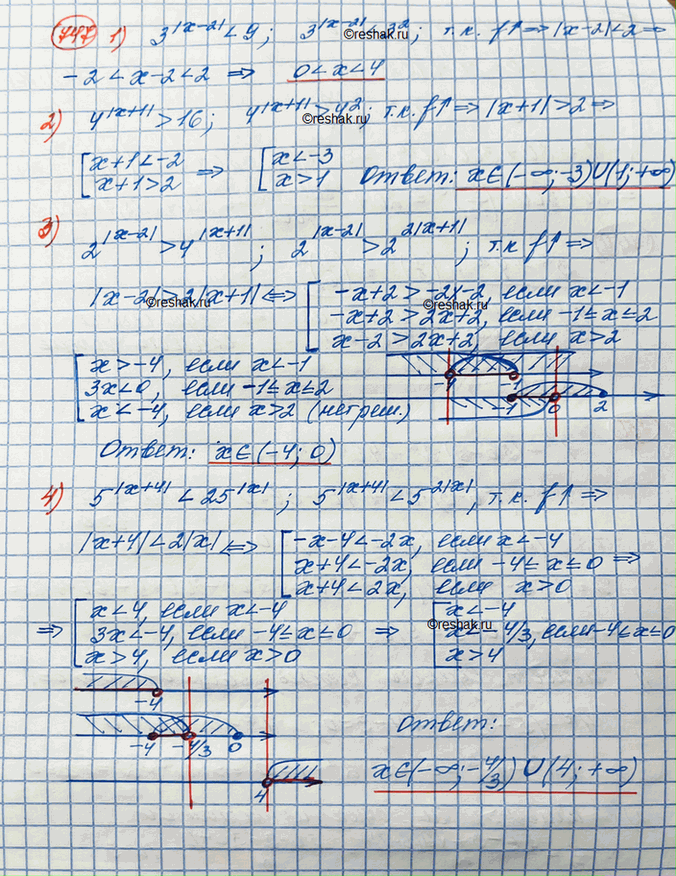 747 1) 3^|x-2| < 9; 3^|x-2| < 3^2; т.к. f↑ ⇒ |x-2| < 2 ⇒
©reshak.ru
-2 < x-2 < 2 ⇒ 0 < x < 4
2) 4^|x+1| > 16; 4^|x+1| > 4^2; т.к. f↑ ⇒ |x+1| > 2 ⇒
©reshak.ru
[ x+1 < -2 ⇒ [ x < -3
x+1 > 2 x > 1 Ответ: x∈(-∞;-3)∪(1;+∞)
3) 2^|x-2| > 4^|x+1|; 2^|x-2| > 2^2|x+1|; т.к f↑ ⇒
|x-2| > 2|x+1| ⇔ [ -x+2 > -2x-2, если x < -1
©reshak.ru ©reshak.ru
-x+2 > 2x+2, если -1 ≤ x ≤ 2
x-2 > 2x+2, если x > 2
[ x > -4, если x < -1
3x < 0, если -1 ≤ x ≤ 2
x < -4, если x > 2 (нет реш.)
-4 -1
-1 0 2
Ответ: x∈(-4; 0)
4) 5^|x+4| < 25^|x|; 5^|x+4| < 5^2|x|, т.к. f↑ ⇒
|x+4| < 2|x| ⇔ [ -x-4 < -2x, если x < -4
x+4 < -2x, если -4 ≤ x ≤ 0 ⇒
x+4 < 2x, если x > 0
⇒ [ x < 4, если x < -4 [ x < -4
©reshak.ru
3x < -4, если -4 ≤ x ≤ 0 ⇒ x < -4/3, если -4 ≤ x ≤ 0
x > 4, если x > 0 x > 4
-4
-4 -4/3 0
4
Ответ:
x∈(-∞; -4/3) ∪ (4; +∞)